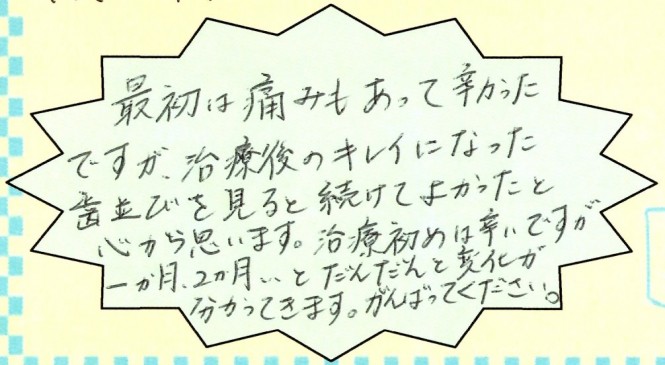 最初は痛みもあって辛かった
ですが、治療後のキレイになった
歯並びを見ると続けてよかったと
心から思います。治療初めは辛いですが
一か月、2か月‥とだんだんと変化が
分かってきます。がんばってください。